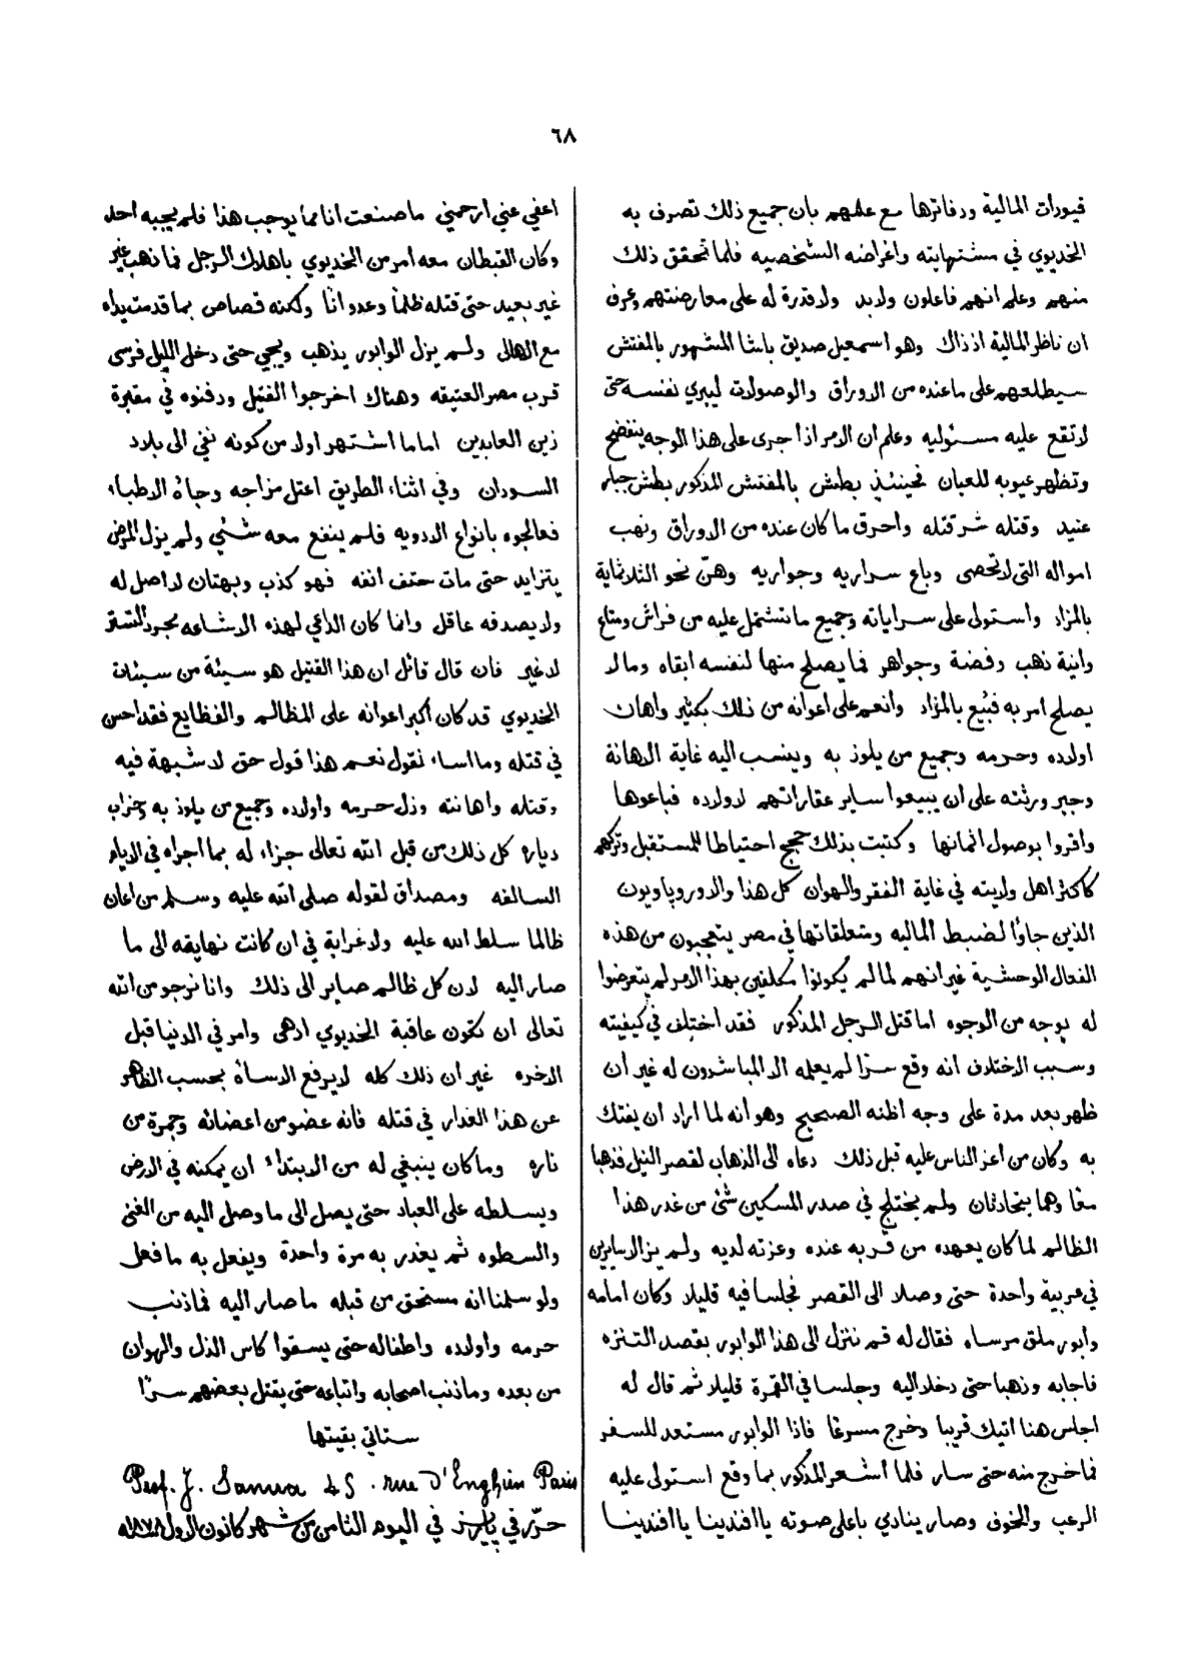 ٦٨
قيودات المالية ودفاترها مع علمهم بان جميع ذلك تصرف به
الخديوي في مشتهياته واغراضه الشخصيه فلما تحقق ذلك
منهم وعلم انهم فاعلون ولابد ولا قدرة له على معارضتهم وعرف
ان ناظر المالية اذ ذاك وهو اسمعيل صديق باشا المشهور بالمفتش
سيطلعهم على ماعنده من الاوراق والوصولات ليبري نفسه حتى
لا تقع عليه مسئوليه وعلم ان الامر اذا جرى على هذا الوجه ينفضح
وتظهر عيوبه للعيان فحينئذ بطش بالمفتش المذكور بطش جبار
عنيد وقتله شر قتله واحرق ما كان عنده من الاوراق ونهب
امواله التى لا تحصى وباع سراريه وجواريه وهنّ نحو الثلاثماية
بالمزاد واستولى على سراياته وجميع ما تشتمل عليه من فراش ومتاع
وانية ذهب وفضة وجواهر فما يصلح منها لنفسه ابقاه وما لا
يصلح امر به فبيع بالمزاد وانعم على اعوانه من ذلك بكثير واهان
اولاده وحرمه وجميع من يلوذ به وينسب اليه غاية الاهانة
وجبر ورثته على ان يبيعوا ساير عقاراتهم لاولاده فباعوها
واقروا بوصول اثمانها وكتبت بذلك حجج احتياطا للمستقبل وتركهم
كاكثر اهل ولايته في غاية الفقر والهوان كل هذا والاوروپاويون
الذين جاؤا لضبط الماليه ومتعلقاتها في مصر يتعجبون من هذه
الفعال الوحشية غير انهم لما لم يكونوا مكلفين بهذا الامر لم يتعرضوا
له بوجه من الوجوه اما قتل الرجل المذكور فقد اختلف في كيفيته
وسبب الاختلاف انه وقع سرًا لم يعلمه الا المباشرون له غير أن
ظهر بعد مدة على وجه اظنه الصحيح وهو أنه لما اراد ان يفتك
به وكان من اعز الناس عليه قبل ذلك دعاه الى الذهاب لقصر النيل فذهبا
معًا وهما يتحادثان ولم يختلج في صدر المسكين شئ من غدر هذا
الظالم لما كان يعهده من قربه عنده وعزته لديه ولم يزالا سايرين
في عربية واحدة حتى وصلا الى القصر فجلسا فيه قليلا وكان امامه
وابور ملق مرساه فقال له قم ننزل الى هذا الوابور بقصد التنزه
فاجابه وذهبا حتى دخلا اليه وجلسا في القمرة قليلا ثم قال له
اجلس هنا اتيك قريبا وخرج مسرعًا فاذا الوابور مستعد للسفر
فما خرج منه حتى سار فلما أشعر المذكور بما وقع استولى عليه
الرعب والخوف وصار ينادي باعلى صوته يا افندينا يا افندينا
اعفي عني ارحمني ما صنعت انا مما يوجب هذا فلم يجبه احد
وكان القبطان معه امر من الخديوي باهلاك الرجل فما ذهب غير
غير بعيد حتى قتله ظلمًا وعدوانًا ولكنه قصاص بما قدمت يداه
مع الهالى ولم يزل الوابور يذهب ويجي حتى دخل الليل فرسى
قرب مصر العتيقه وهناك اخرجوا القتيل ودفنوه في مقبرة
زين العابدين اما ما اشتهر اولا من كونه نفي الى بلاد
السودان وفي اثناء الطريق اعتل مزاجه وجاه الاطباء
فعالجوه بانواع الادويه فلم ينفع معه شئي ولم يزل المرض
يتزايد حتى مات حتف انفه فهو كذب وبهتان لا اصل له
ولا يصدقه عاقل وانما كان الداعي لهذه الاشاعه مجرد التستر
لا غير فان قال قائل ان هذا القتيل هو سيئة من سيئات
الخديوي قد كان أكبر اعوانه على المظالم والفظايع فقد احسن
في قتله وما اساء نقول نعم هذا قول حق لا شبهة فيه
وقتله واهانته وذل حرمه واولاده وجميع من يلوذ به وخراب
دياره كل ذلك من قبل الله تعالى جزاء له بما اجراه في الايام
السالفه ومصداق لقوله صلى الله عليه وسلم من اعان
ظالما سلط الله عليه ولا غرابة في ان كانت نهايته الى ما
صار اليه لان كل ظالم صاير الى ذلك وانا نرجو من الله
تعالى ان تكون عاقبة الخديوي ادهى وامر في الدنيا قبل
الاخره غير ان ذلك كله لا يرفع الاسأة بحسب الظاهر
عن هذا الغدار في قتله فانه عضو من اعضائه وجمرة من
ناره وما كان ينبغي له من الابتداء ان يمكنه في الارض
ويسلطه على العباد حتى يصل الى ما وصل اليه من الغنى
والسطوه ثم يغدر به مرة واحدة ويفعل به ما فعل
ولو سلمنا انه مستحق من قبله ما صار اليه فما ذنب
حرمه واولاده واطفاله حتى يسقوا كاس الذل والهوان
من بعده وما ذنب اصحابه واتباعه حتى يقتل بعضهم سرًا
ستاتي بقيتها
Prof. J. Sanua 48. rue d'Enghien Paris
حرّر في پاريز في اليوم الثامن من شهر كانون الاول ١٨٧٨